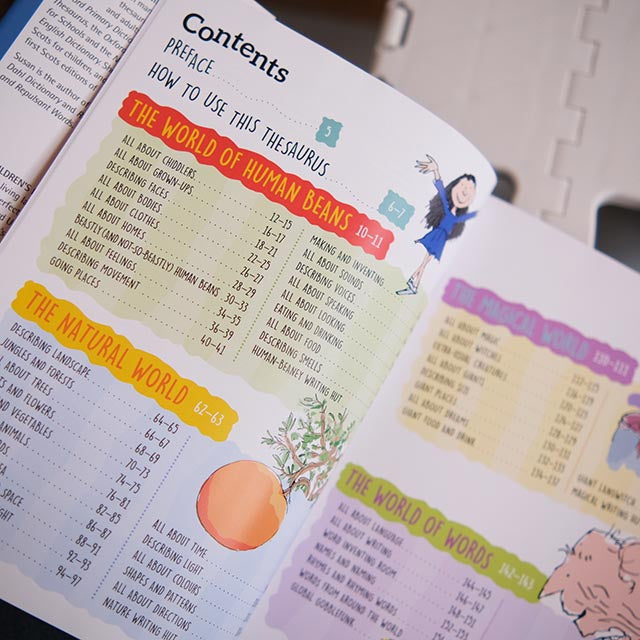 Thesaurus, the Oxfor
for Schools and the
English Dictionary. S
Scots for children, a
first Scots editions of
Susan is the author o
Dahl Dictionary and R
and Repulsant Words.
Contents
PREFACE 5
HOW TO USE THIS THESAURUS 6–7
THE WORLD OF HUMAN BEANS 10–11
ALL ABOUT CHIDDLERS 12–15
ALL ABOUT GROWN-UPS 16–17
DESCRIBING FACES 18–21
ALL ABOUT BODIES 22–25
ALL ABOUT CLOTHES 26–27
ALL ABOUT HOMES 28–29
BEASTLY (AND NOT-SO-BEASTLY) HUMAN BEANS 30–33
ALL ABOUT FEELINGS 34–35
DESCRIBING MOVEMENT 36–39
GOING PLACES 40–41
MAKING AND INVENTING
ALL ABOUT SOUNDS
DESCRIBING VOICES
ALL ABOUT SPEAKING
ALL ABOUT LOOKING
EATING AND DRINKING
ALL ABOUT FOOD
DESCRIBING SMELLS
HUMAN-BEANEY WRITING HUT
THE NATURAL WORLD 62–63
DESCRIBING LANDSCAPE 64–65
JUNGLES AND FORESTS 66–67
ABOUT TREES 68–69
S AND FLOWERS 70–73
AND VEGETABLES 74–75
ANIMALS 76–81
82–85
86–87
SPACE 88–91
92–93
94–97
ALL ABOUT TIME
DESCRIBING LIGHT
ALL ABOUT COLOURS
SHAPES AND PATTERNS
ALL ABOUT DIRECTIONS
NATURE WRITING HUT
THE MAGICAL WORLD 110–111
ALL ABOUT MAGIC
ALL ABOUT WITCHES
EXTRA-USUAL CREATURES
ALL ABOUT GIANTS
DESCRIBING SIZE
GIANT PLACES
ALL ABOUT DREAMS
GIANT FOOD AND DRINK
GIANT SANDWICH
MAGICAL WRITING HU
THE WORLD OF WORDS 142–143
ALL ABOUT LANGUAGE 144–145
ALL ABOUT WRITING 146–147
WORD INVENTING ROOM
NAMES AND NAMING
RHYMES AND RHYMING WORDS
WORDS FROM AROUND THE WORLD
GLOBAL GOBBLEFUNK